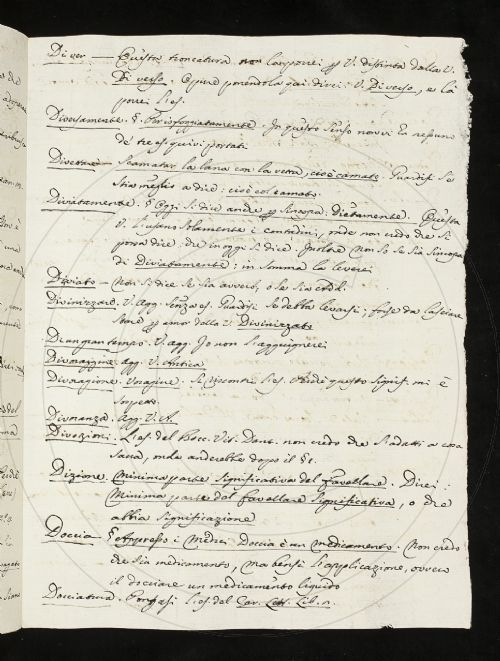 Di ver — Questa troncatura non la porrei p V. distinta dalla V.
Di verso. O pure ponendola qui direi: V. Di verso, e là
porrei l'es.
Diversamente. §. Per isfoggiatamente. In questo senso non vi è nessuno
de' tre es. quivi portati.
Divettare — Scamatar la lana con la vetta, cioè camato. Guardisi se
stia meglio a dire: cioè col camato.
Diviatamente. § Oggi si dice anche p sincopa: Dietamente. Questa
V. l'usano solamente i contadini, onde non credo che si
possa dire che in oggi si dice. Inoltre non so se sia sincopa
di Diviatamente; in somma la leverei
Diviato — Non si dice se sia avverb. o se sia add.
Divinizzare. V. agg. senza es. Guardisi se debba levarsi; forse da lasciare
stare p amor della V. Divinizzato
Di an gran tempo. V. agg. Io non l'aggiugnerei
Divoraggine. agg. V. Antica
Divoragione. Voragine. Si riscontri l'es. perchè questo signif. mi è
sospetto.
Divoranza. Agg. V. A.
Divozioni. L'es. del Bocc. Vit. Dant. non credo che s'adatti a cosa
sacra, ma anderebbe dopo il §1.
Dizione. Minima parte significativa del favellare. Direi:
Minima parte del favellare significativa, o che
abbia significazione
Doccia § Appresso i Medici Doccia è un medicamento. Non credo
che sia medicamento, ma bensì l'applicazione, ovvero
il docciare un medicamento liquido
Docciatura. Pongasi l'es. del Car. Lett. Lib. n.